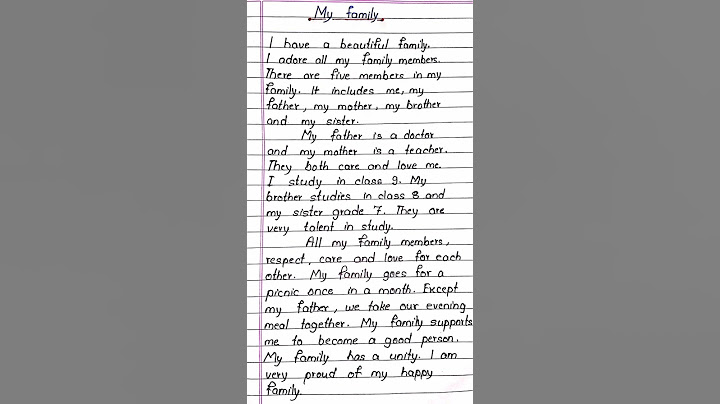 My family.
I have a beautiful family.
I adore all my family members.
There are five members in my
family. It includes me, my
father, my mother, my brother
and my sister.
My father is a doctor
and my mother is a teacher.
They both care and love me.
I study in class 9. My
brother studies in class 8 and
my sister grade 7. They are
very talent in study.
All my family members,
respect, care and love for each
other. My family goes for a
picnic once in a month. Except
my father, we take our evening
meal together. My family supports
me to become a good person.
My family has a unity. I am
very proud of my happy
family.